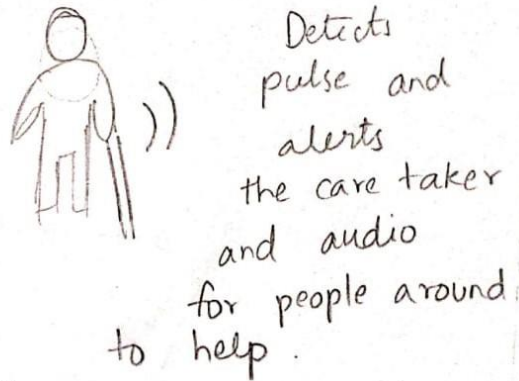 Detects
pulse and
alerts
the care taker
and audio
for people around
to help.